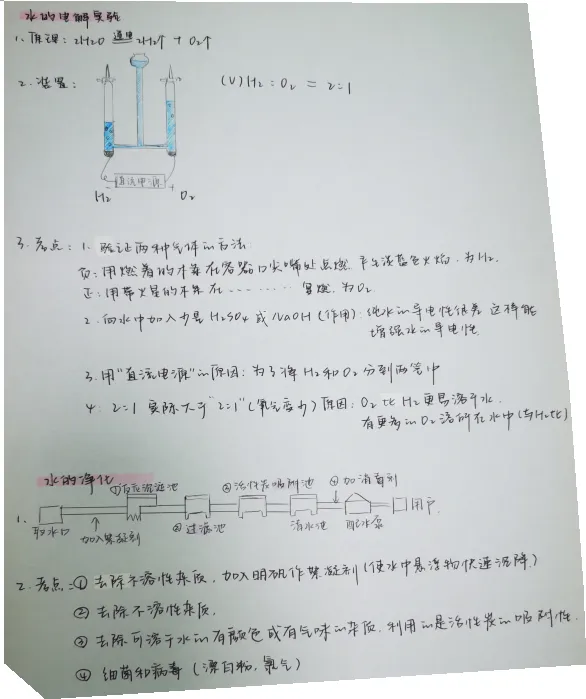 水的电解实验
1. 原理: 2H2O 通电 2H2↑ + O2↑
2. 装置: (V) H2 : O2 = 2:1
直流电源
- +
H2 O2
3. 考点: 1. 验证两种气体的方法:
负: 用燃着的木条在容器口尖嘴处点燃. 产生淡蓝色火焰. 为H2.
正: 用带火星的木条在 ……… 复燃. 为O2
2. 向水中加入少量H2SO4或NaOH (作用): 纯水的导电性很差 这样能
增强水的导电性.
3. 用"直流电源"的原因: 为了将H2和O2分到两管中
4: 2=1 实际大于"2=1" (氧气变少) 原因: O2比H2更易溶于水.
有更多的O2溶解在水中(与H2比)
水的净化
1. ①反应沉淀池 ③活性炭吸附池 ④加消毒剂
取水口 ②过滤池 清水池 配水泵 用户.
加入絮凝剂
2. 考点: ① 去除不溶性杂质, 加入明矾作絮凝剂 (使水中悬浮物快速沉降)
② 去除不溶性杂质.
③ 去除可溶于水的有颜色或有气味的杂质. 利用的是活性炭的吸附性.
④ 细菌和病毒 (漂白粉, 氯气)